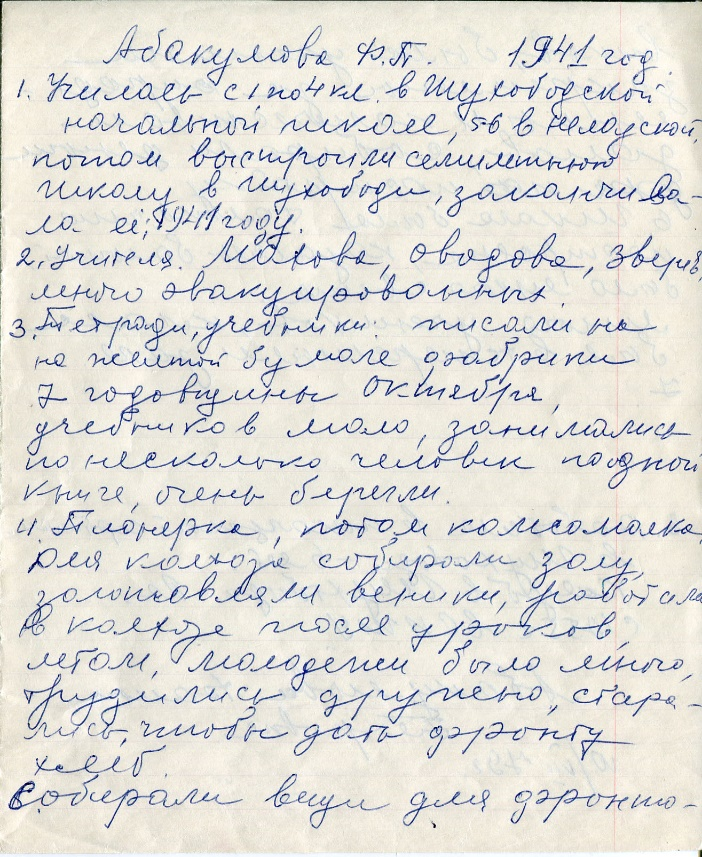 Абакумова Ф.П. 1941 год.
1. Училась с 1 по 4 кл. в Шухободской
начальной школе, 5-6 в Нелазской,
потом выстроили семилетнюю
школу в Шухободи, заканчива-
ла её, 1941 году.
2. Учителя. Махова, Оводова, Зверев,
много эвакуированных.
3. Тетради, учебники писали на
на желтой бумаге фабрики
7 годовщины Октября,
учебников мало, занимались
по несколько человек по одной
книге, очень берегли.
4. Пионерка, потом комсомолка
для колхоза собирали золу,
заготовляли веники, работала
в колхозе после уроков,
летом, молодежи было много,
трудились дружно, стара-
лись, чтобы дать фронту
хлеб.
Собирали вещи для фронто-